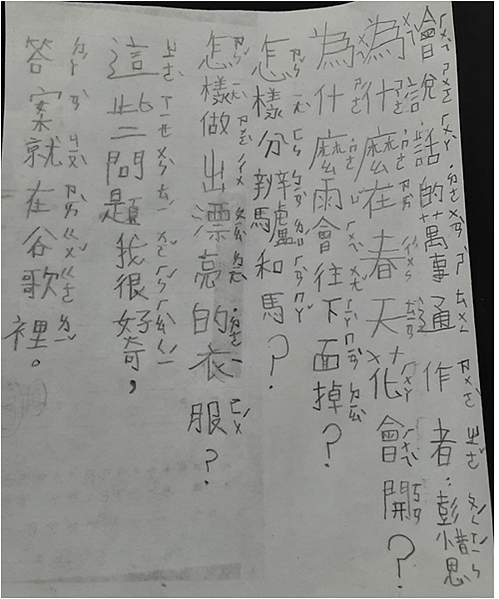 會說話的萬事通 作者:彭惜思
為什麼在春天花會開?
為什麼雨會往下面掉?
怎樣分辨驢和馬?
怎樣做出漂亮的衣服?
這些問題我很好奇,
答案就在谷歌裡。